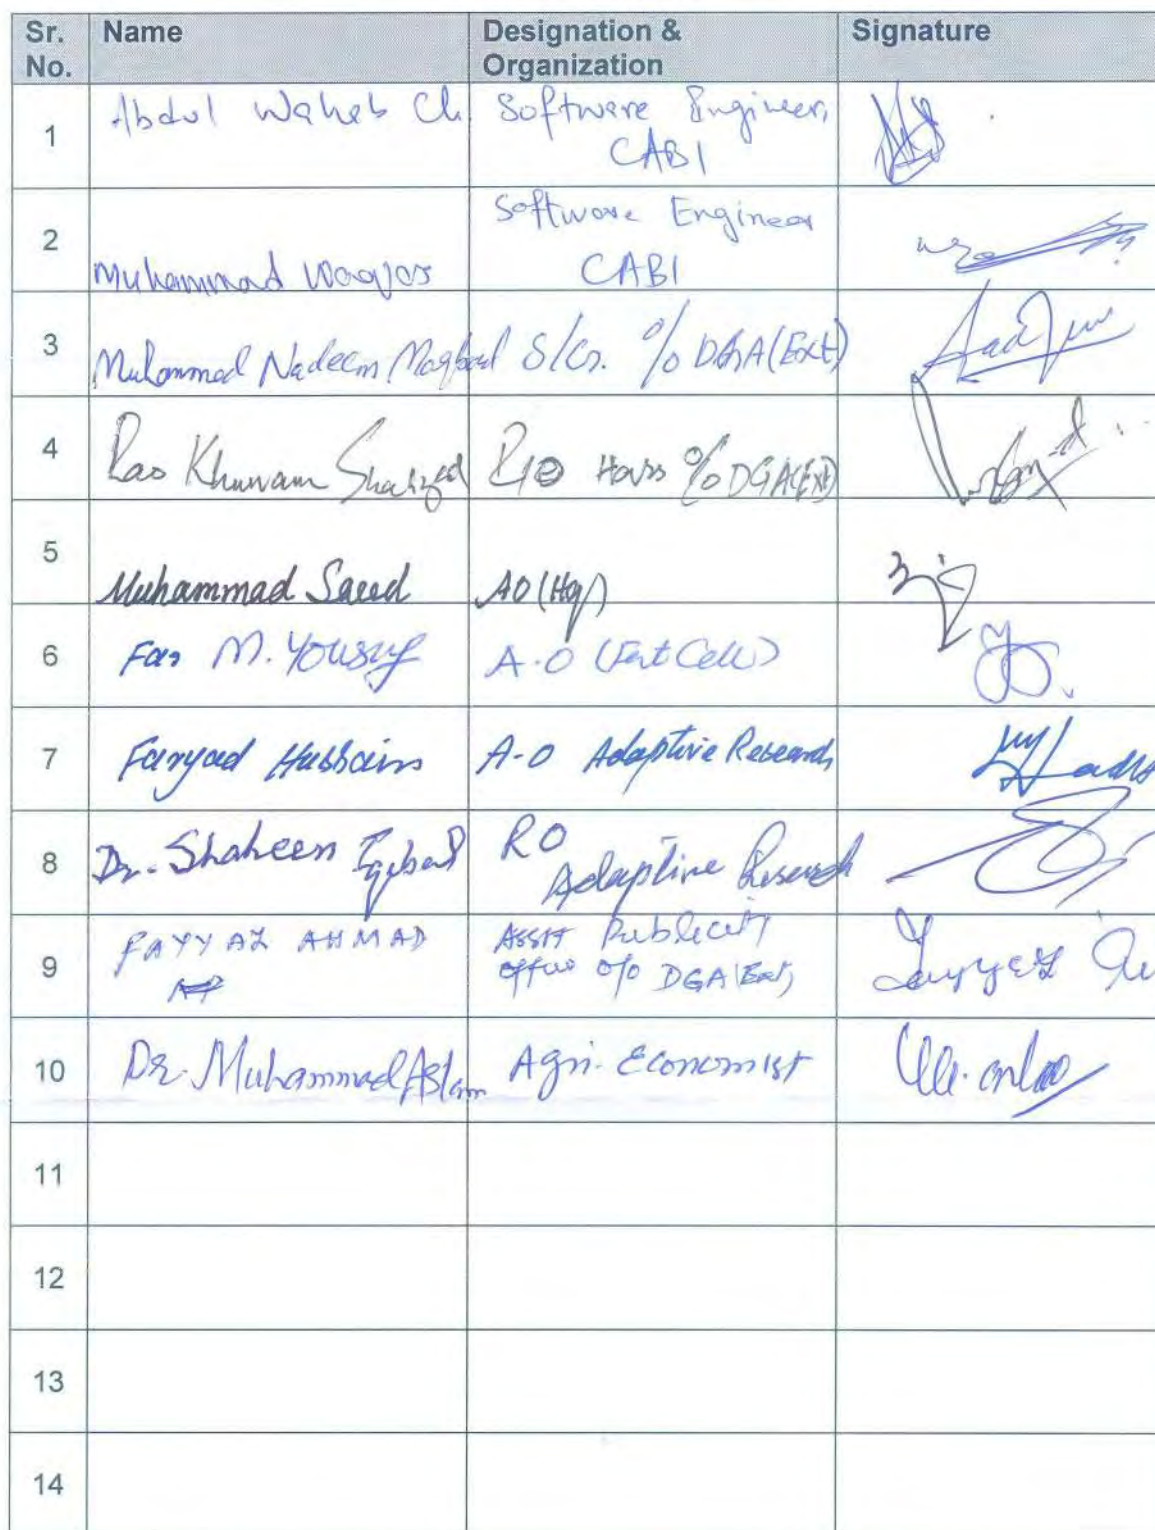 Sr. No. Name Designation & Organization Signature
1 Abdul Waheb Ch. Software Engineer, CABI
2 Muhammad Waqas Software Engineer CABI
3 Muhammad Nadeem Maqbool S/Gr. % DGA(Ext)
4 Rao Khurram Shahzad % DGA(Ext)
5 Muhammad Saeed AO (Hq)
6 M. Yousuf A.O (Fert Cell)
7 Faryad Hussain A-O Adaptive Research
8 Dr. Shaheen Iqbal RO Adaptive Research
9 FAYYAZ AHMAD Asstt Publicity o/o DGA(Ext)
10 Dr. Muhammad Aslam Agri. Economist
11
12
13
14